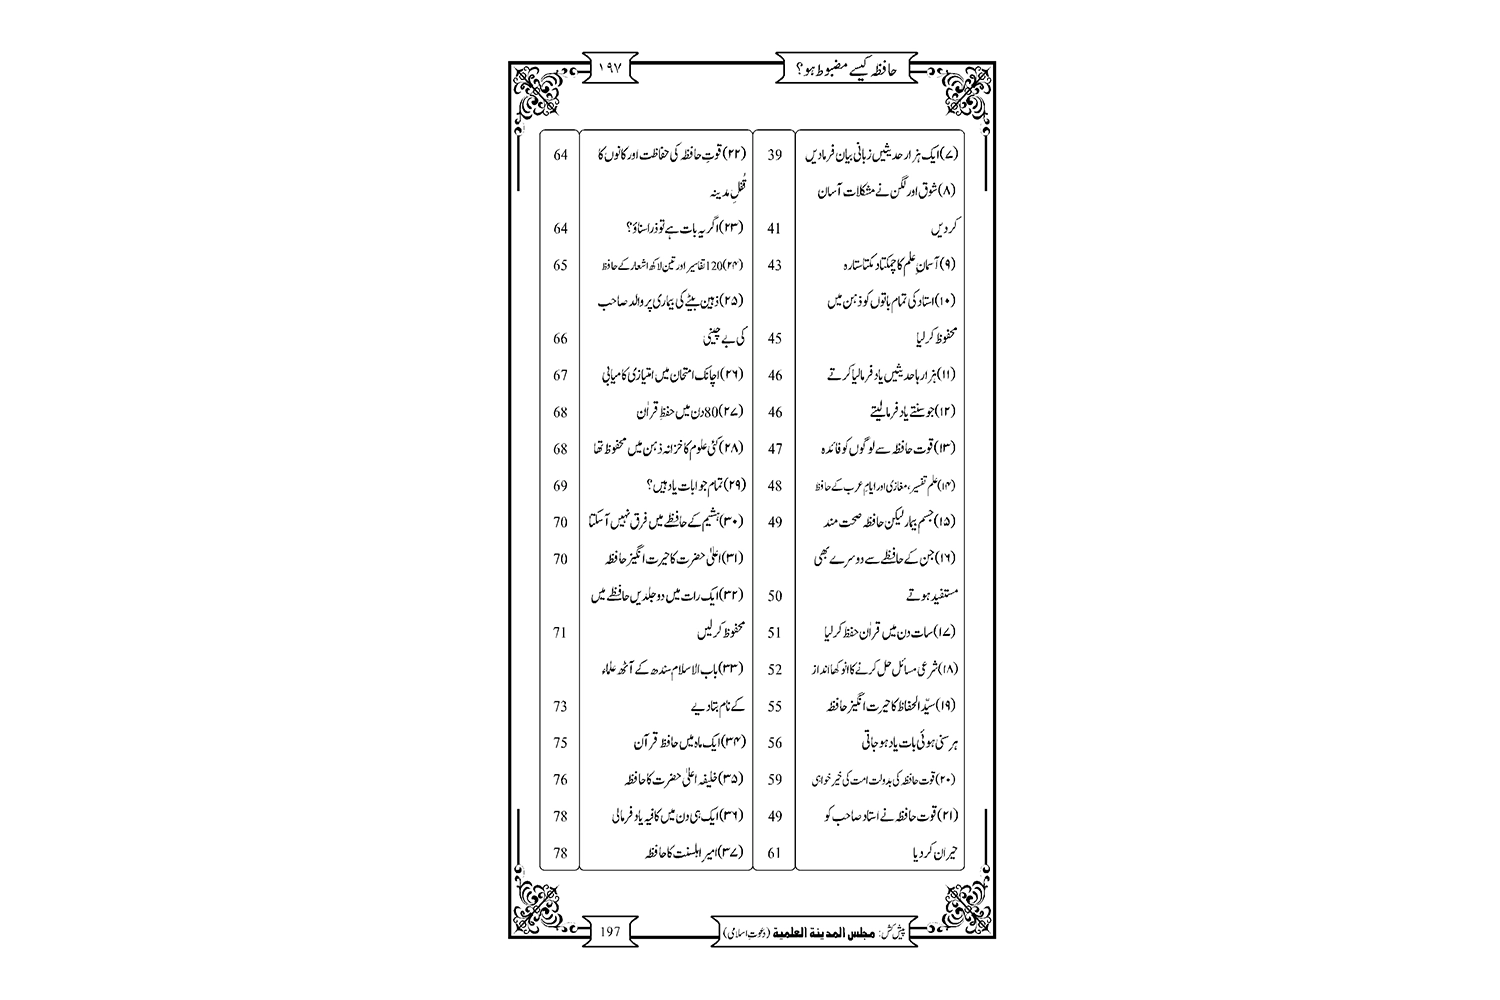 حافظہ کیسے مضبوط ہو؟
۱۹۷
(۷) ایک ہزار حدیثیں زبانی بیان فرمادیں 39
(۸) شوق اور لگن نے مشکلات آسان
کردیں 41
(۹) آسمانِ علم کا چمکتا دمکتا ستارہ 43
(۱۰) استاد کی تمام باتوں کو ذہن میں
محفوظ کرلیا 45
(۱۱) ہزارہا حدیثیں یاد فرمالیا کرتے 46
(۱۲) جو سنتے یاد فرمالیتے 46
(۱۳) قوت حافظہ سے لوگوں کو فائدہ 47
(۱۴) علم تفسیر، مغازی اور ایامِ عرب کے حافظ 48
(۱۵) جسم بیمار لیکن حافظہ صحت مند 49
(۱۶) جن کے حافظے سے دوسرے بھی
مستفید ہوتے 50
(۱۷) سات دن میں قراٰن حفظ کرلیا 51
(۱۸) شرعی مسائل حل کرنے کا انوکھا انداز 52
(۱۹) سیّد الحفاظ کا حیرت انگیز حافظہ 55
ہر سنی ہوئی بات یاد ہوجاتی 56
(۲۰) قوت حافظہ کی بدولت امت کی خیر خواہی 59
(۲۱) قوت حافظہ نے استاد صاحب کو 49
حیران کردیا 61
(۲۲) قوتِ حافظہ کی حفاظت اور کانوں کا 64
قُفلِ مدینہ
(۲۳) اگر یہ بات ہے تو ذرا سناؤ؟ 64
(۲۴) 120 تفاسیر اور تین لاکھ اشعار کے حافظ 65
(۲۵) ذہین بیٹے کی بیماری پر والد صاحب
کی بے چینی 66
(۲۶) اچانک امتحان میں امتیازی کامیابی 67
(۲۷) 80 دن میں حفظِ قراٰن 68
(۲۸) کئی علوم کا خزانہ ذہن میں محفوظ تھا 68
(۲۹) تمام جوابات یاد ہیں؟ 69
(۳۰) ہشیم کے حافظے میں فرق نہیں آسکتا 70
(۳۱) اعلیٰ حضرت کا حیرت انگیز حافظہ 70
(۳۲) ایک رات میں دو جلدیں حافظے میں
محفوظ کرلیں 71
(۳۳) باب الاسلام سندھ کے آٹھ علماء
کے نام بتادیے 73
(۳۴) ایک ماہ میں حافظ قرآن 75
(۳۵) خلیفہ اعلیٰ حضرت کا حافظہ 76
(۳۶) ایک ہی دن میں کافیہ یاد فرمالی 78
(۳۷) امیر اہلسنت کا حافظہ 78
پیش کش: مجلس المدینۃ العلمیۃ (دعوتِ اسلامی)
197